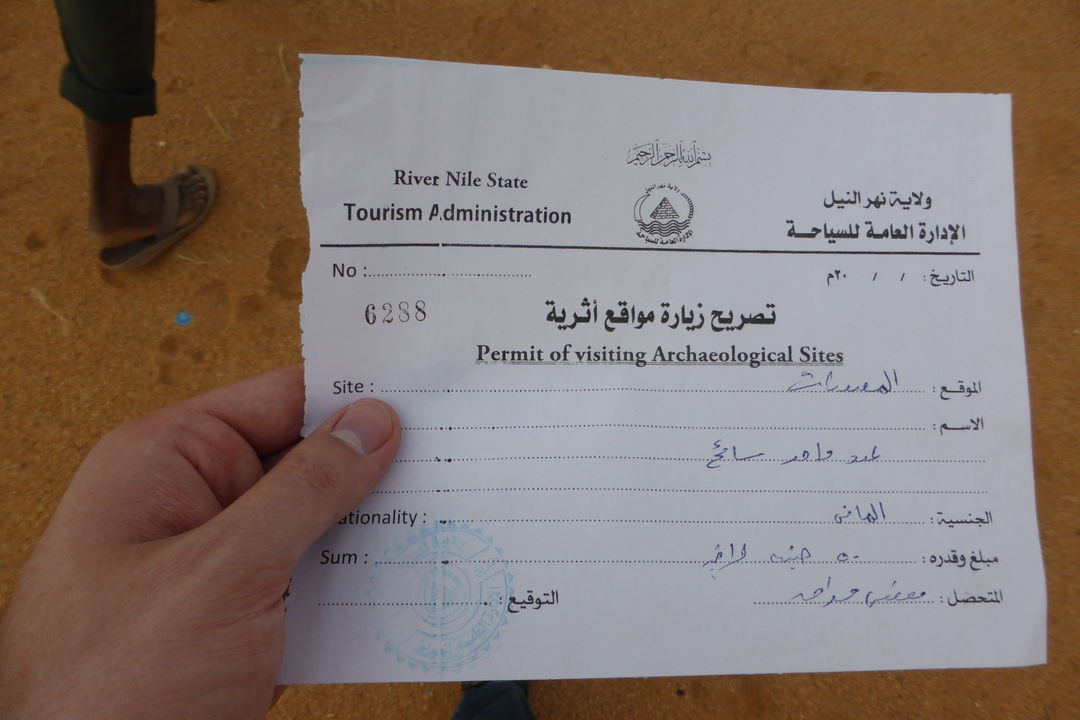 بسم الله الرحمن الرحيم
River Nile State
Tourism Administration
ولاية نهر النيل
الإدارة العامة للسياحة
ولاية نهر النيل
الإدارة العامة للسياحة
No :
التاريخ : / / ٢٠م
6288
تصريح زيارة مواقع أثرية
Permit of visiting Archaeological Sites
Site : المصورات الموقع :
الاسم :
عدد واحد سائح
ationality : الماني الجنسية :
Sum : ٥٠ جنيه لاغير مبلغ وقدره :
المتحصل :
التوقيع :